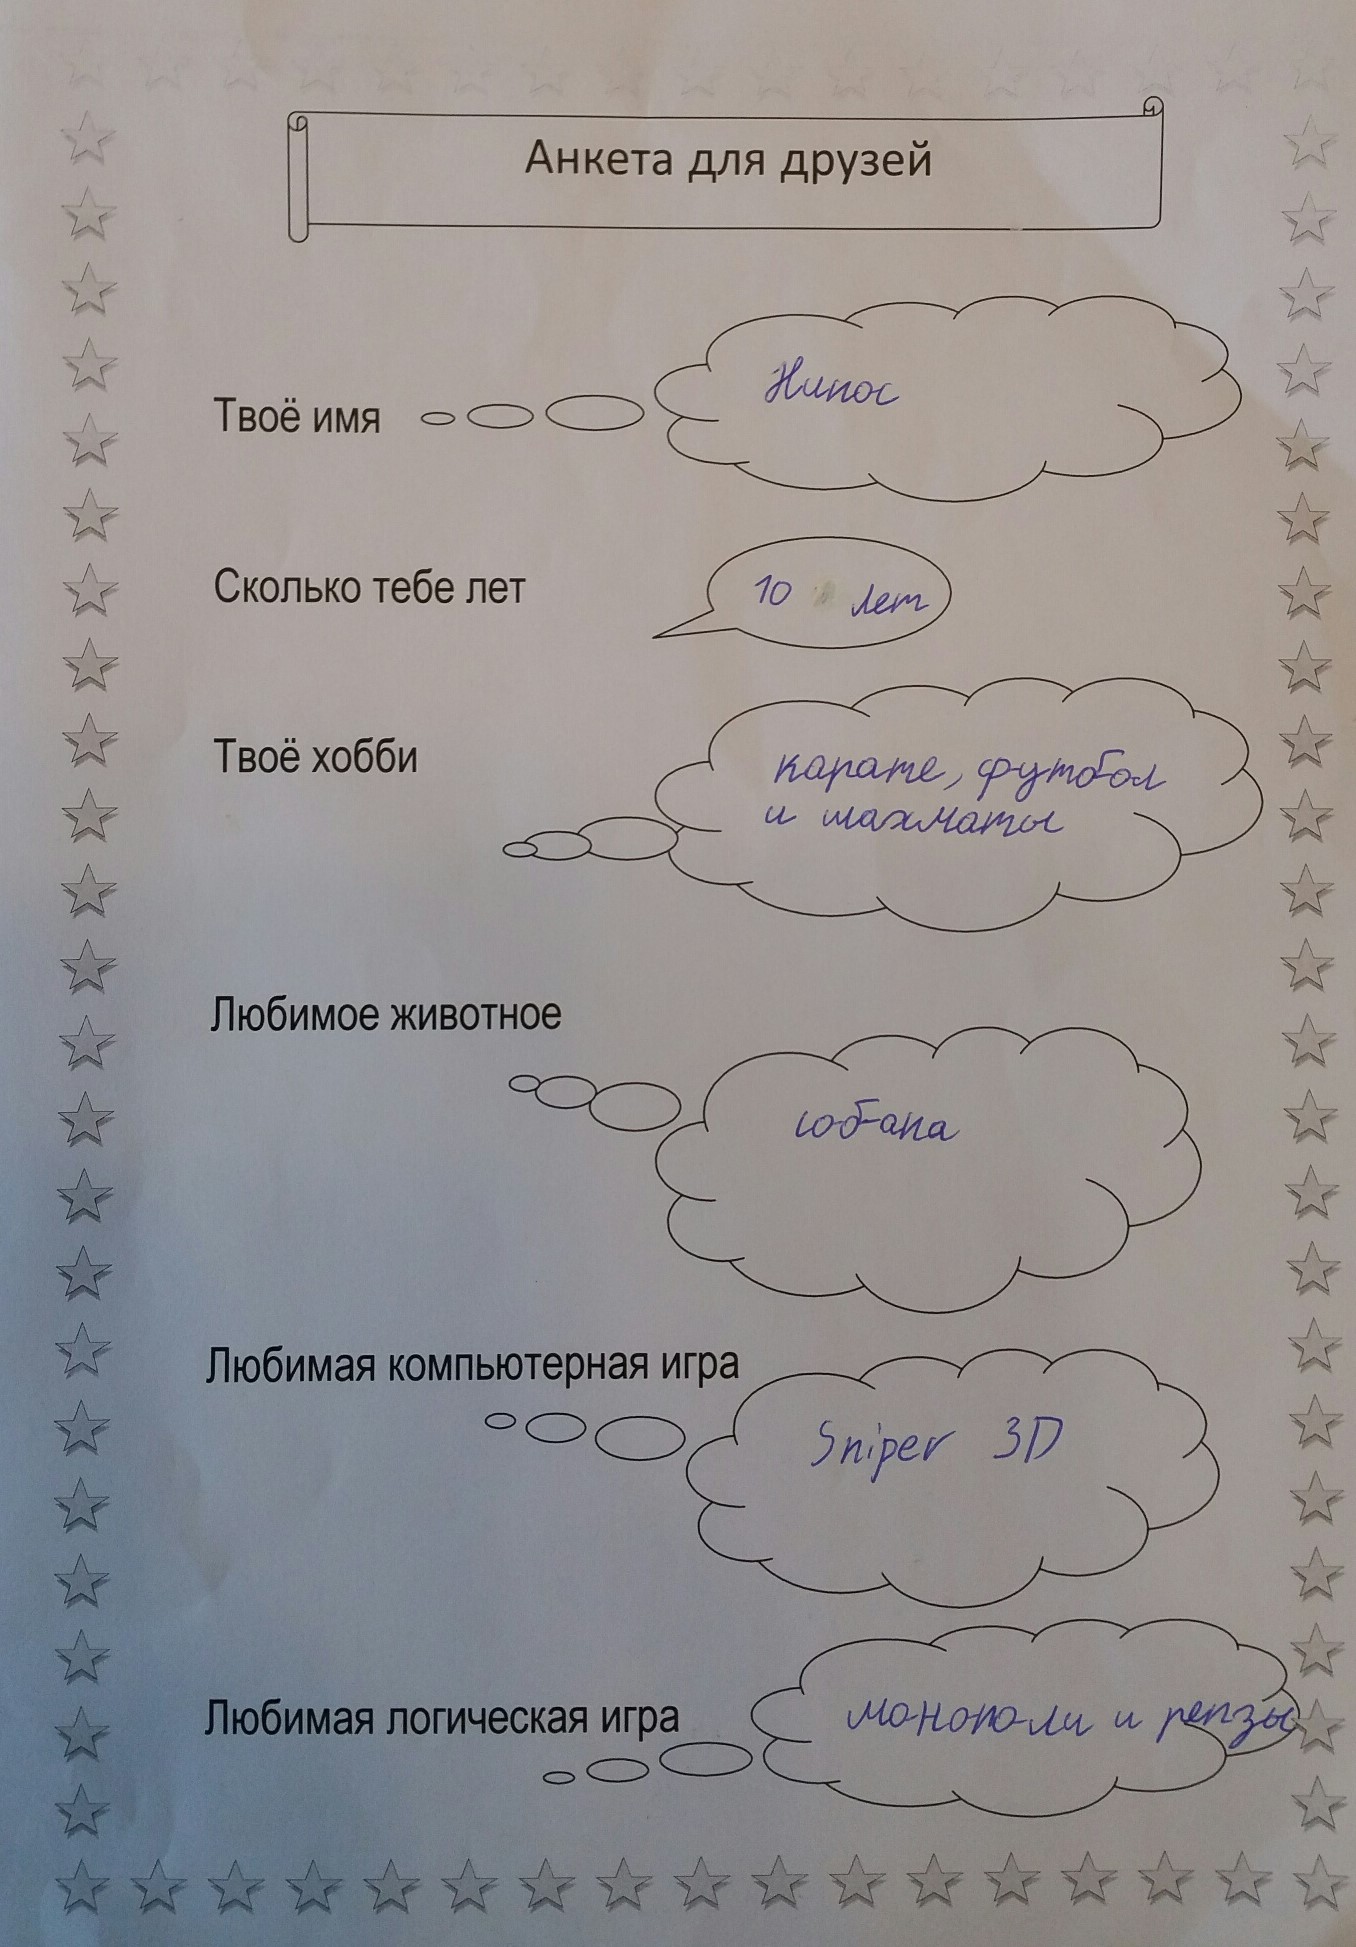 Анкета для друзей
Твоё имя
Нипос
Сколько тебе лет
10 лет
Твоё хобби
карате, футбол
и шахматы
Любимое животное
собака
Любимая компьютерная игра
Sniper 3D
Любимая логическая игра
монополи и